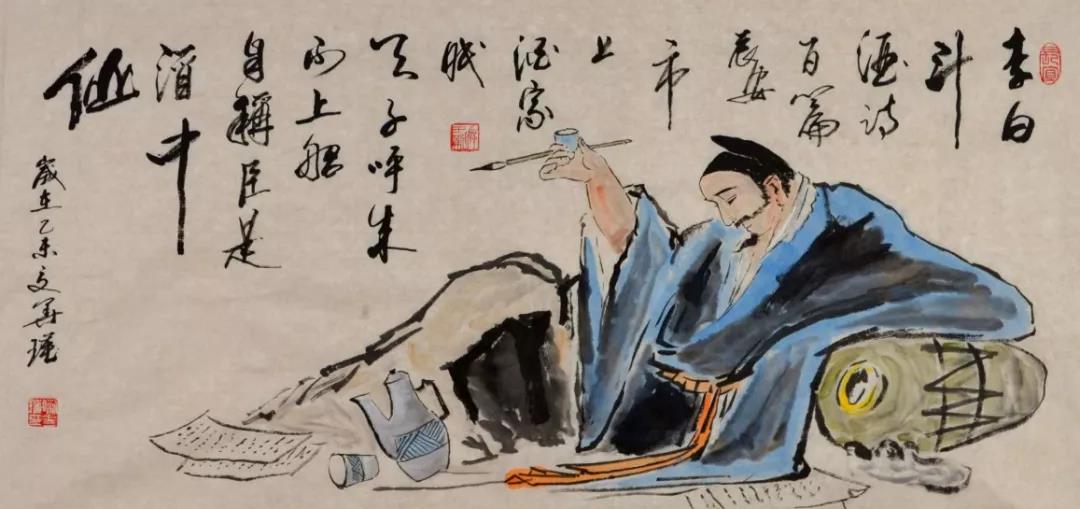 李白
斗
酒诗
百篇
長安
市
上
酒家
眠
天子呼来
不上船
自稱臣是
酒中
仙
歲在乙未文